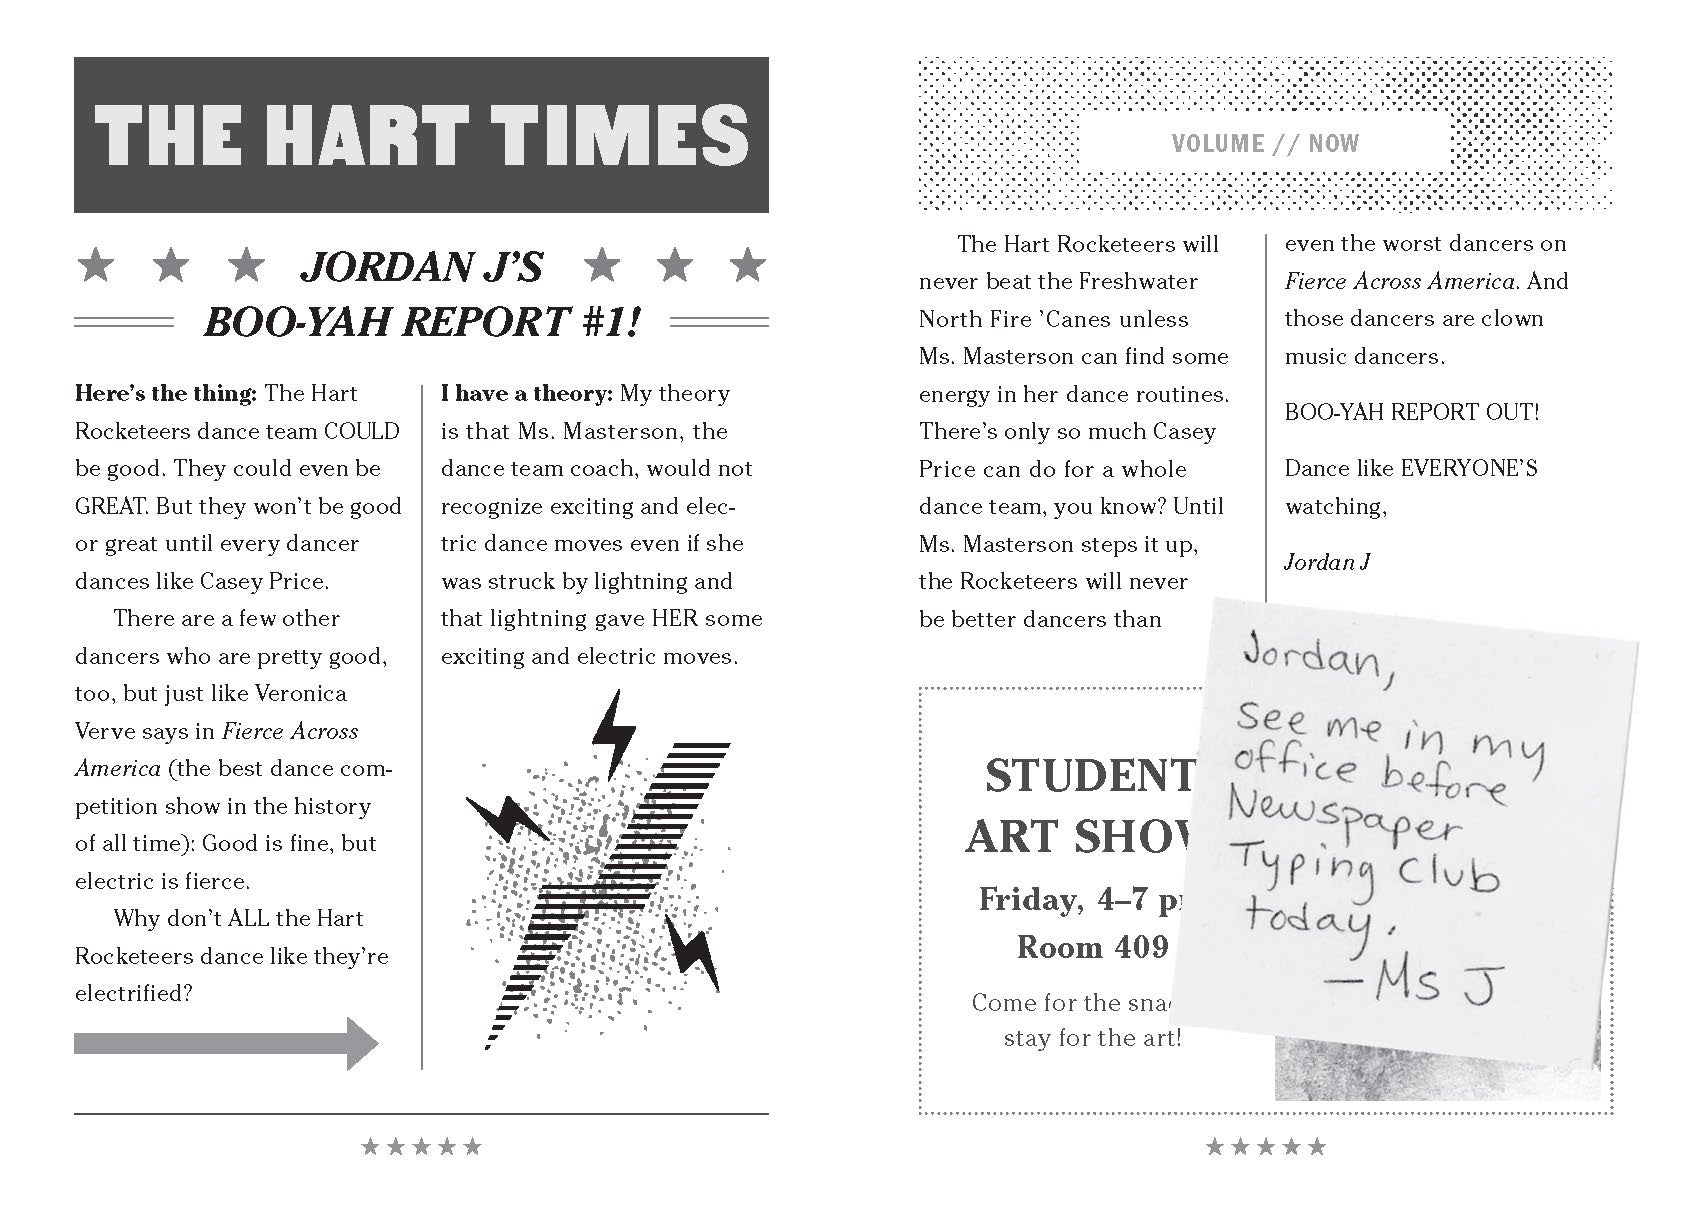 THE HART TIMES
JORDAN J'S
BOO-YAH REPORT #1!
Here's the thing: The Hart
Rocketeers dance team COULD
be good. They could even be
GREAT. But they won't be good
or great until every dancer
dances like Casey Price.
There are a few other
dancers who are pretty good,
too, but just like Veronica
Verve says in Fierce Across
America (the best dance com-
petition show in the history
of all time): Good is fine, but
electric is fierce.
Why don't ALL the Hart
Rocketeers dance like they're
electrified?
I have a theory: My theory
is that Ms. Masterson, the
dance team coach, would not
recognize exciting and elec-
tric dance moves even if she
was struck by lightning and
that lightning gave HER some
exciting and electric moves.
VOLUME // NOW
The Hart Rocketeers will
never beat the Freshwater
North Fire 'Canes unless
Ms. Masterson can find some
energy in her dance routines.
There's only so much Casey
Price can do for a whole
dance team, you know? Until
Ms. Masterson steps it up,
the Rocketeers will never
be better dancers than
even the worst dancers on
Fierce Across America. And
those dancers are clown
music dancers.
BOO-YAH REPORT OUT!
Dance like EVERYONE'S
watching,
Jordan J
STUDENT
ART
Friday, 4–7
Room 409
Come for the
stay for the art!
Jordan,
See me in my
office before
Newspaper
Typing Club
today.
—Ms J